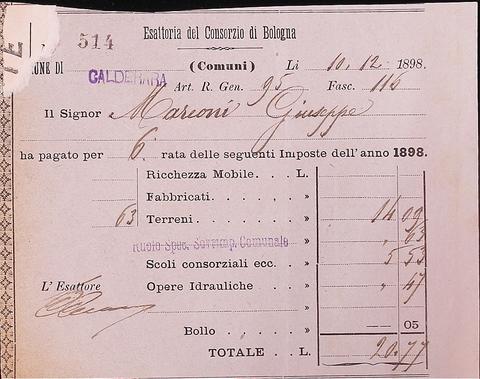 Esattoria del Consorzio di Bologna
514
(Comuni) Li 10. 12. 1898.
ONE DI CALDERARA
Art. R. Gen. 95 Fasc. 116
Il Signor Marconi Giuseppe
ha pagato per 6. rata delle seguenti Imposte dell'anno 1898.
Ricchezza Mobile. . . L.
Fabbricati. . . . . . . . »
63 Terreni . . . . . . . . . » 14 09
Ruolo Spec. Sovrimp. Comunale » , 63
Scoli consorziali ecc. . . » 5 53
L'Esattore Opere Idrauliche . . . » " 47
»
Bollo . . . . . » —— 05
TOTALE . . L. 20.77